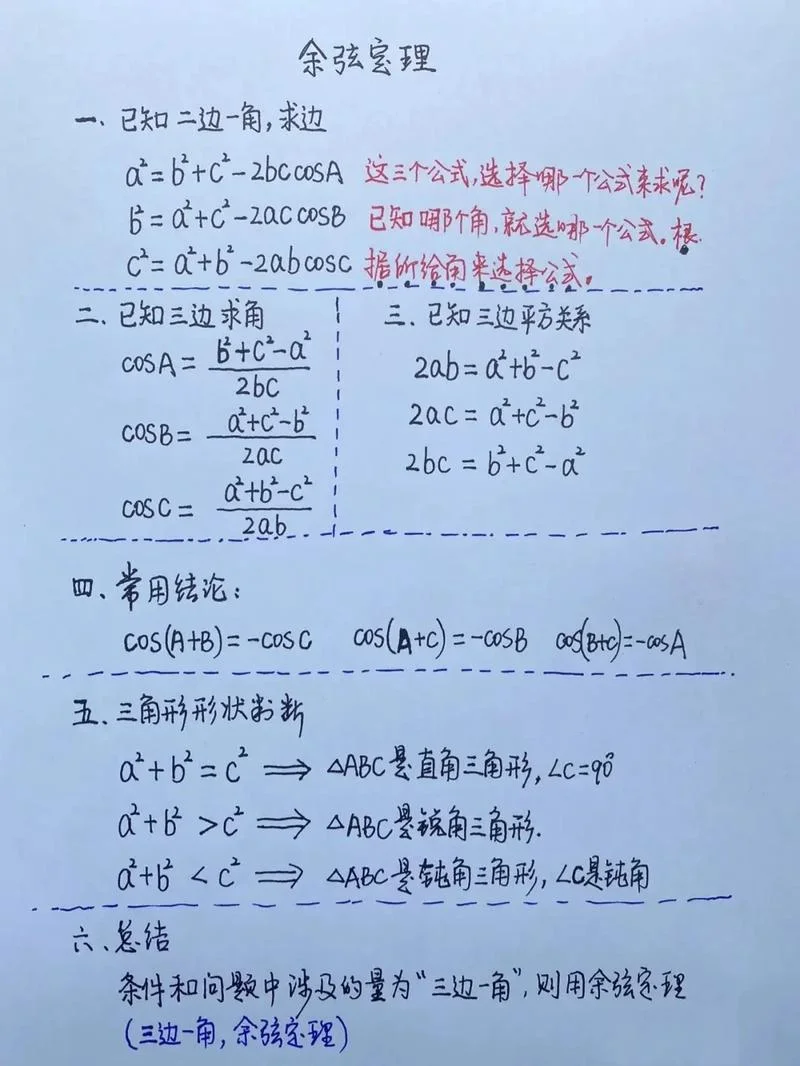 余弦定理
一、已知二边一角,求边
a²=b²+c²-2bccosA 这三个公式,选择哪一个公式来求呢?
b²=a²+c²-2accosB 已知哪个角,就选哪一个公式。根
c²=a²+b²-2abcosc 据所给角来选择公式。
二、已知三边求角
cosA= b²+c²-a² / 2bc
cosB= a²+c²-b² / 2ac
cosC= a²+b²-c² / 2ab
三、已知三边平方关系
2ab=a²+b²-c²
2ac=a²+c²-b²
2bc=b²+c²-a²
四、常用结论:
cos(A+B)=-cosC cos(A+C)=-cosB cos(B+C)=-cosA
五、三角形形状判断
a²+b²=c² ⟹ △ABC是直角三角形,∠C=90°
a²+b²>c² ⟹ △ABC是锐角三角形.
a²+b²<c² ⟹ △ABC是钝角三角形,∠C是钝角
六、总结
条件和问题中涉及的量为“三边一角”,则用余弦定理
(三边一角,余弦定理)